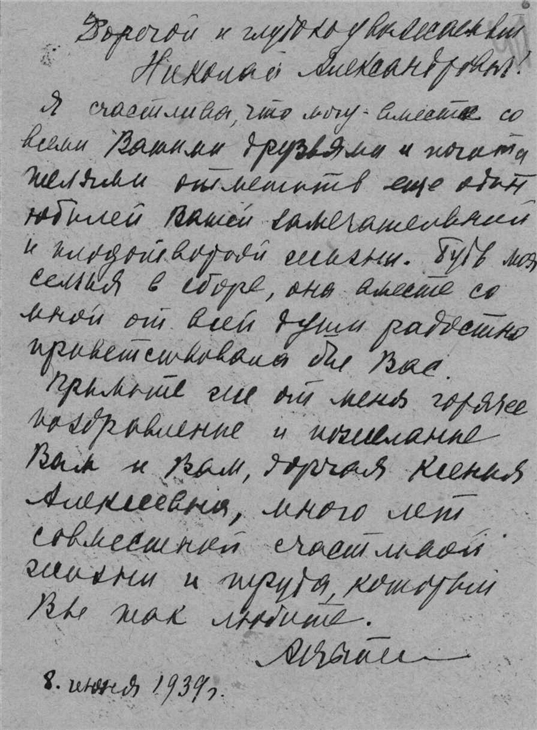 Дорогой и глубокоуважаемый
Николай Александрович!
Я счастлива, что могу вместе со
всеми Вашими друзьями и почита
телями отметить еще один
юбилей Вашей замечательной
и плодотворной жизни. Будь моя
семья в сборе, она вместе со
мной от всей души радостно
приветствовала бы Вас.
Примите же от меня горячее
поздравление и пожелание
Вам и Вам, дорогая Ксения
Алексеевна, много лет
совместной счастливой
жизни и труда, который
Вы так любите.
8. июня 1939 г.